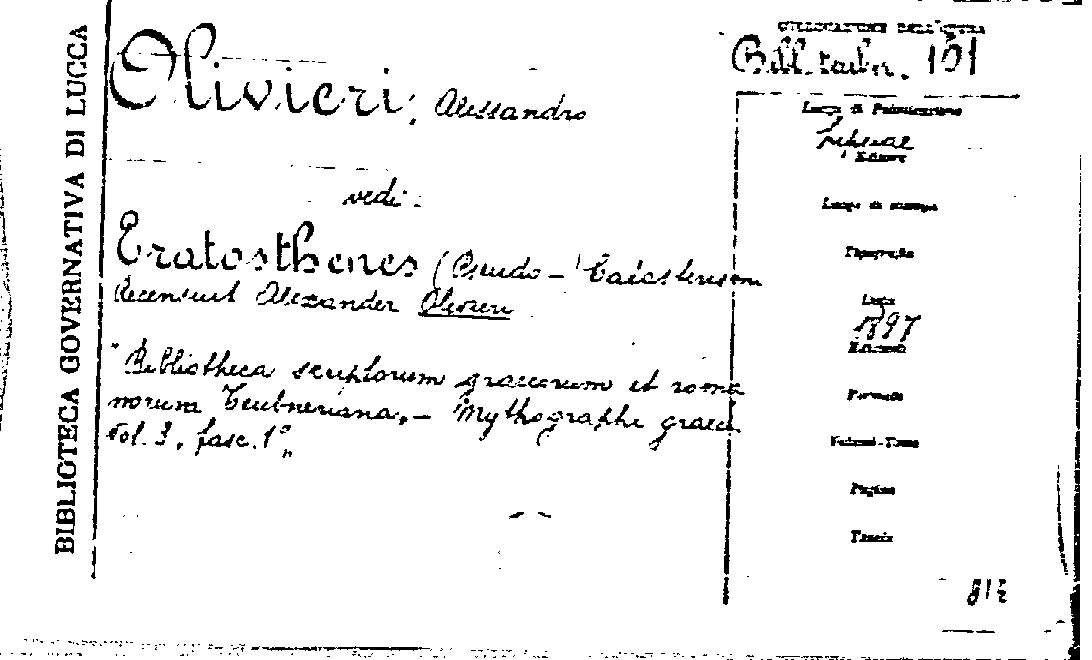 BIBLIOTECA GOVERNATIVA DI LUCCA
Olivieri, Alessandro
vedi:
Eratosthenes (Pseudo-) Catasterismi
Recensuit Alexander Olivieri
"Bibliotheca scriptorum graecorum et roma
norum Teubneriana. - Mythographi graeci
Vol. 3, fasc. 1º„
COLLOCAZIONE DELL'OPERA
Bibl. teubn. 191
Luogo di Pubblicazione
Lipsiae
Editore
Luogo di stampa
Tipografia
Data
1897
Edizione
Formato
Volumi-Tomo
Pagine
Tavole